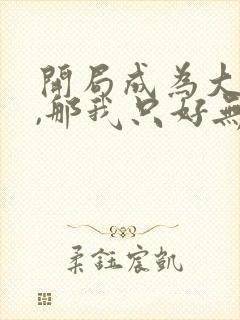 開局成為大
,那我只好無
柔鈺宸凱